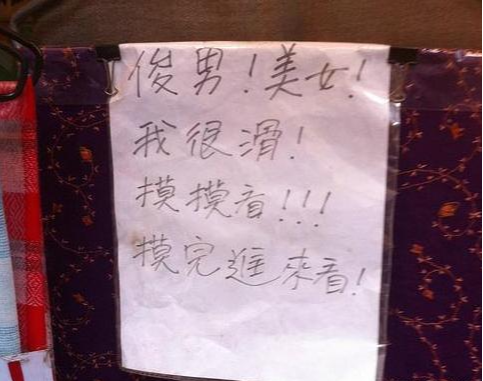 俊男!美女!
我很滑!
摸摸看!!!
摸完進來看!